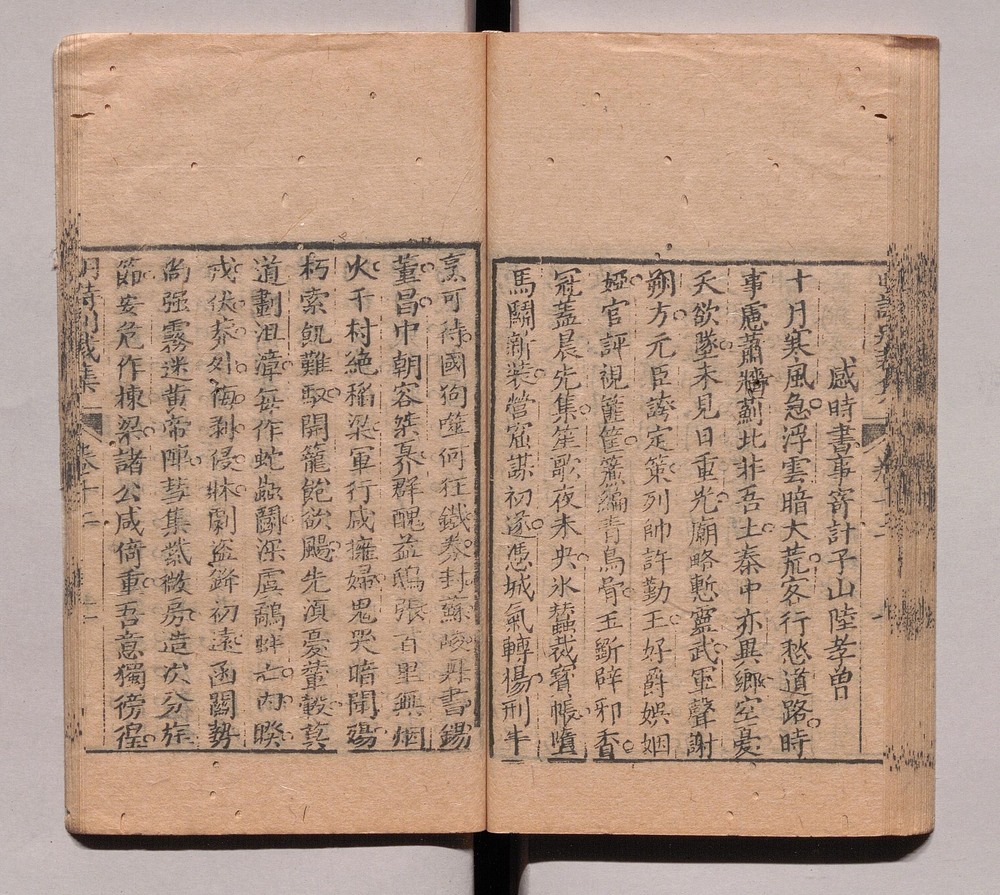 感時書事寄計子山陸孝曾
十月寒風急浮雲暗大荒客行愁道路時
事慮蕭牆薊北非吾土秦中亦異鄉空憂
天欲墜未見日重光廟略慙靈武軍聲謝
朔方元臣誇定策列帥許勤王好爵娛姻
婭官評視篚筐簫編青鳥骨玉斷辟邪香
冠蓋晨先集笙歌夜未央氷蠶裁寳帳噴
馬鬬新裝營窟謀初遂憑城氣轉揚刑牛
烹可待國狗噬何狂鐵券封蘇峻丹書錫
董昌中朝容桀梟群醜益鴟張百里無烟
火千村絶稻梁軍行咸擁婦鬼哭暗聞殤
朽索飢難馭開籠飽欲颺先湏憂輦轂
道劃沮漳毎作蛇蟲鬬深虞鷸蚌亡内睽
戎伏莽外侮剥侵牀劇盜錚初遠函關勢
尚强霧迷黄帝陣彗集紫微房造次分旄
節安危作棟梁諸公咸倚重吾意獨徬徨
明詩别裁集
卷十二